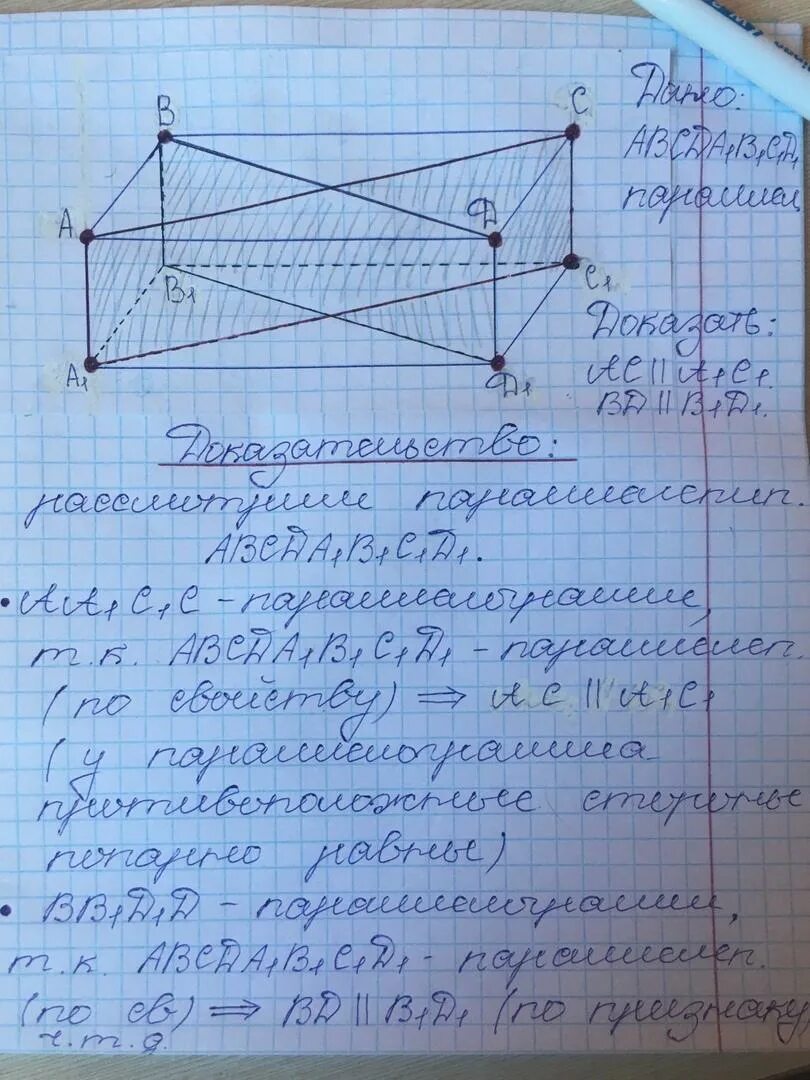 B
C
A
Д
B₁
C₁
A₁
Д₁
Дано:
ABCДA₁B₁C₁Д₁
параллел
Доказать:
AC || A₁C₁.
BД || B₁Д₁.
Доказательство:
рассмотрим параллелепип.
ABCДA₁B₁C₁Д₁.
• AA₁C₁C - параллелограмм,
т.к. ABCДA₁B₁C₁Д₁ - параллелеп.
(по свойству) ⇒ AC || A₁C₁
(у параллелограмма
противоположные стороны
попарно равны)
• BB₁Д₁Д - параллелограмм,
т.к. ABCДA₁B₁C₁Д₁ - параллелеп.
(по св) ⇒ BД || B₁Д₁ (по признаку
ч.т.д.